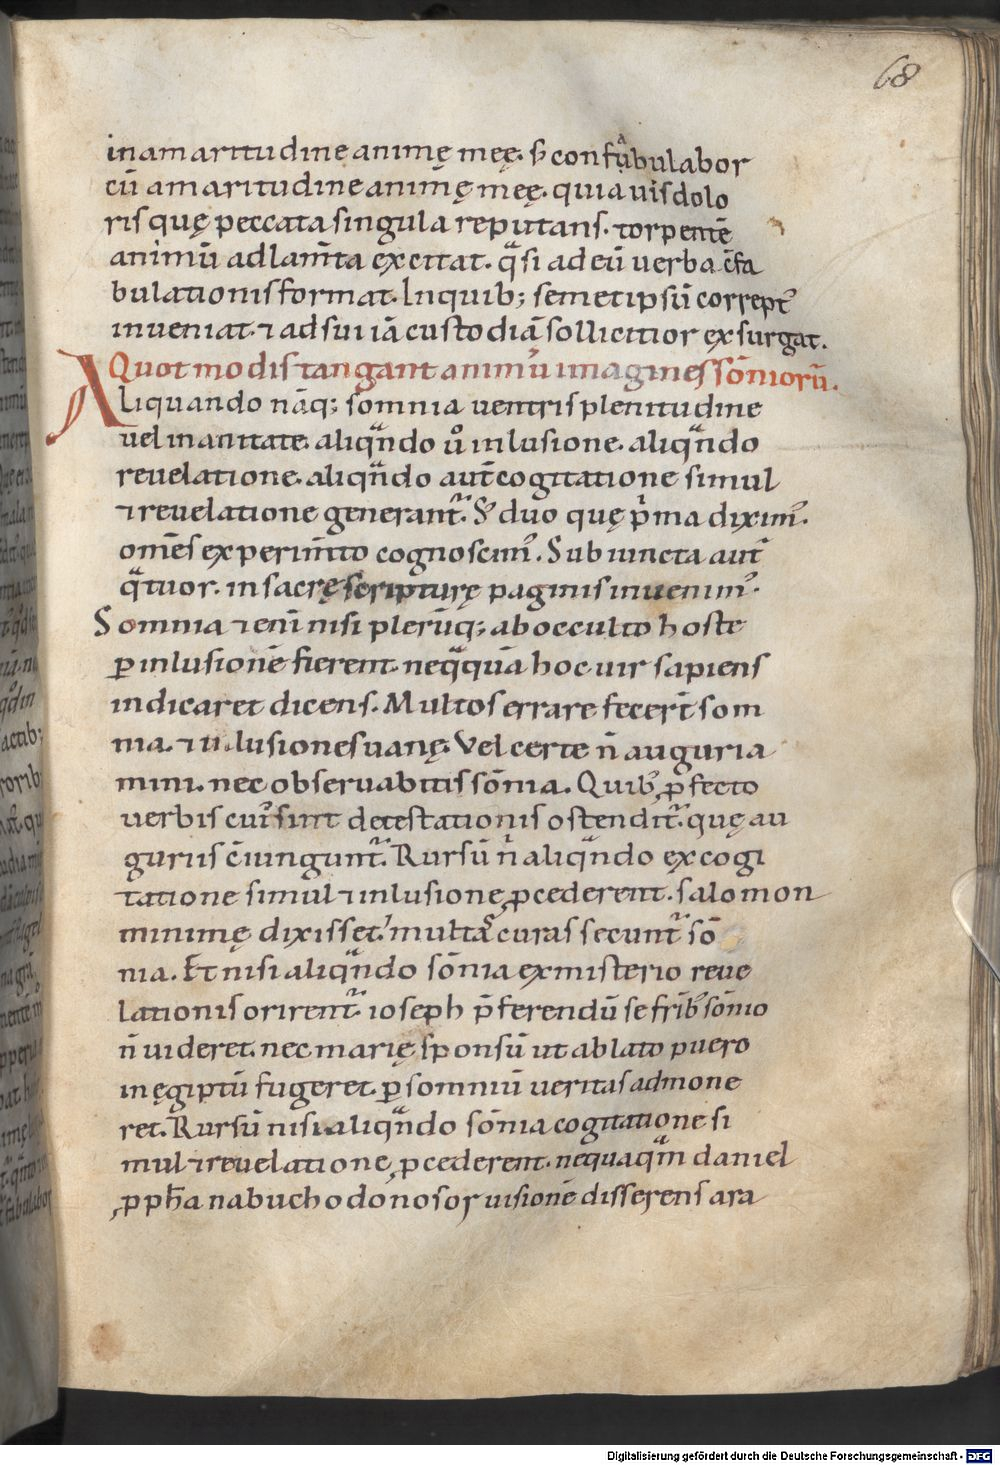 68
in amaritudine animę meę. s; confabulabor
cū amaritudine animę meę. quia uis dolo
ris quę peccata singula reputans. torpentē
animū ad lam̄ta excitat. q̄si ad eū uerba c̄fa
bulationis format. In quib; semetipsū corrept᾽
inueniat. & ad sui iā custodiā sollicitior exsurgat.
Quot modis tangant animū imagines sōmniorū.
Aliquando nāq; somnia uentris plenitudine
uel inanitate. aliqndo ů inlusione. aliqndo
reuelatione. aliqndo aut̄ cogitatione simul
& reuelatione generant᾽. S; duo quę p̍ma dixim᾽.
om̄s experim̄to cognoscim᾽. Subiuncta aut̄
q̄tuor. in sacrę scripturę paginis inuenim᾽.
Somnia & enī nisi plerūq; ab occulto hoste
ꝑ inlusionē fierent. neq̄quā hoc uir sapiens
indicaret dicens. Multos errare fecer̄t som
nia. & inlusiones uanę. Vel certe n̄ auguria
mini. nec obseruabitis sōnia. Quib; ꝓfecto
uerbis cui᾽ sint detestationis ostendit᾽. quę au
guriis c̄iungunt᾽. Rursū n̍ aliqndo ex cogi
tatione simul & inlusione ꝓcederent. salomon
minimę dixisset. multas curas secunt᾽ sō
nia. Et nisi aliqndo sōnia ex misterio reue
lationis orirent᾽. ioseph p̄ferendū se frīb; sōnio
n̄ uideret. nec marię sponsū ut ablato puero
in ęgiptū fugeret. ꝑ somniū ueritas admone
ret. Rursū nisi aliqndo sōnia cogitatione si
mul & reuelatione ꝓcederent. nequaqm̄ daniel
ꝓpħa nabuchodonosor uisionē disserens a ra
Digitalisierung gefördert durch die Deutsche Forschungsgemeinschaft - DFG